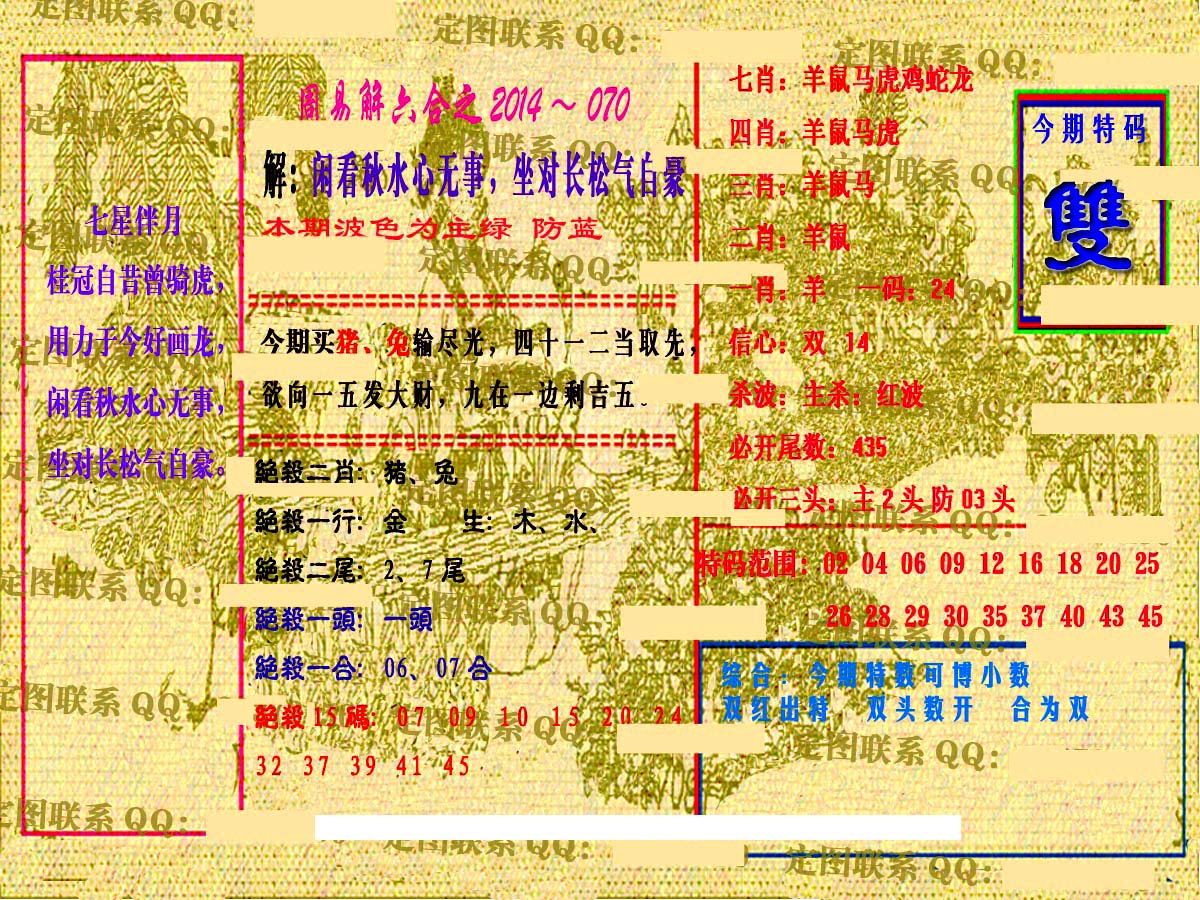 七星伴月
桂冠自昔曾骑虎，
用力于今好画龙，
闲看秋水心无事，
坐对长松气自豪。
周易解六合之 2014 ～ 070
解：闲看秋水心无事，坐对长松气自豪
本期波色为主绿 防蓝
今期买猪、兔输尽光，四十一二当取先，
欲向一五发大财，九在一边剩吉五。
絕殺二肖：猪、兔
絕殺一行：金 生：木、水、
絕殺二尾：2、7 尾
絕殺一頭：一頭
絕殺一合：06、07 合
絕殺 15 碼：07 09 10 15 20 24
32 37 39 41 45
七肖：羊鼠马虎鸡蛇龙
四肖：羊鼠马虎
三肖：羊鼠马
二肖：羊鼠
一肖：羊 一码：24
信心：双 14
杀波：主杀：红波
必开尾数：435
必开三头：主 2 头 防 03 头
今期特码
雙
特码范围：02 04 06 09 12 16 18 20 25
26 28 29 30 35 37 40 43 45
综合：今期特数可博小数
双红出特 双头数开 合为双
定图联系 QQ：
定图联系 QQ：
定图联系 QQ：
定图联系 QQ：
定图联系 QQ：
定图联系 QQ：
定图联系 QQ：
定图联系 QQ：
定图联系 QQ：